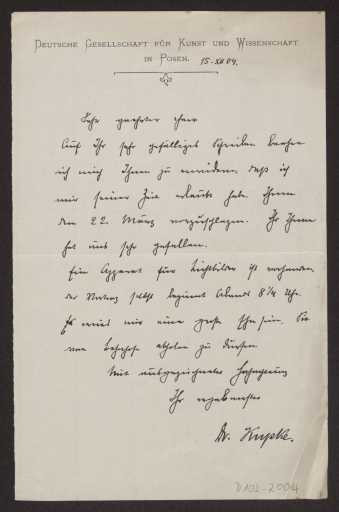 DEUTSCHE GESELLSCHAFT FÜR KUNST UND WISSENSCHAFT
IN POSEN. 15. XII 04.
Sehr geehrter Herr
Auf Ihr sehr gefälliges Schreiben beehre
ich mich Ihnen zu erwidern, daß ich
mir seiner Zeit erlaubt habe Ihnen
den 22. März vorzuschlagen. Ihr Thema
hat uns sehr gefallen.
Ein Apparat für Lichtbilder ist vorhanden.
der Vortrag selbst beginnt Abends 8 1/4 Uhr.
Es wird mir eine große Ehre sein, Sie
vom Bahnhofe abholen zu dürfen.
Mit ausgezeichneter Hochachtung
Ihr ergebenster
Dr. Kupke.